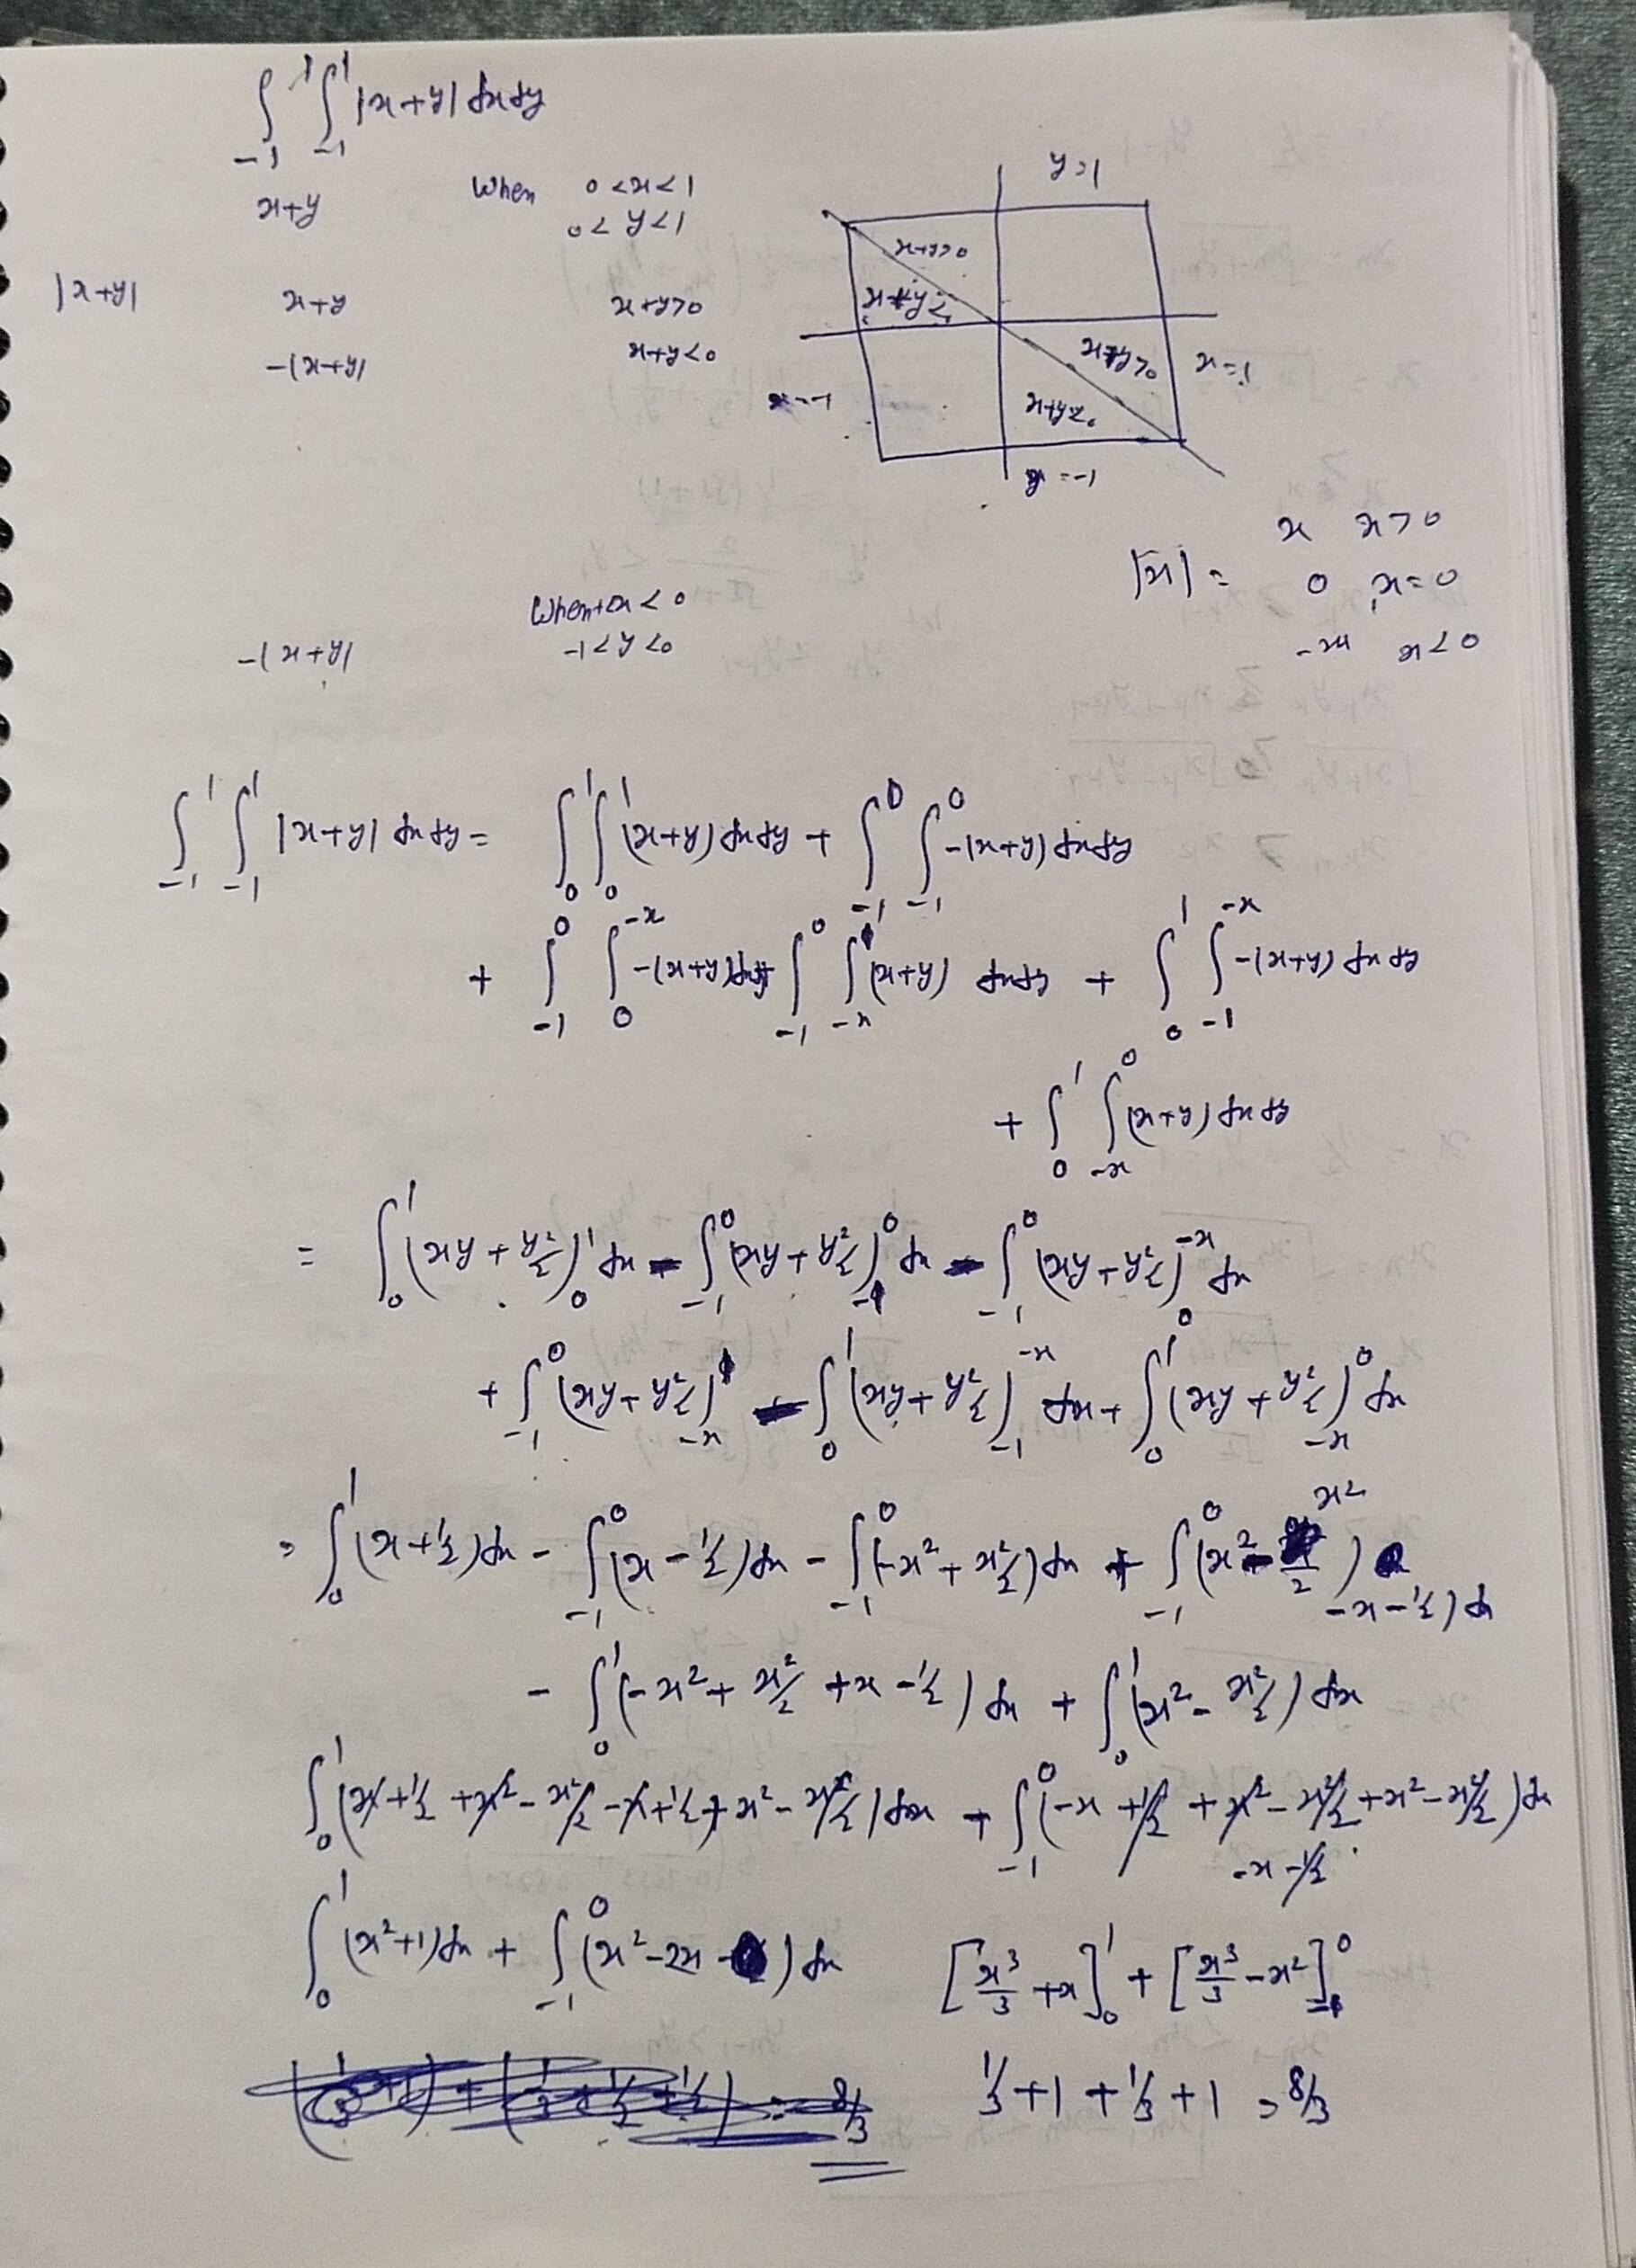 ∫₋₁¹ ∫₋₁¹ |x+y| dx dy
x+y When 0<x<1
0<y<1
y=1
|x+y| x+y x+y>0
-(x+y) x+y<0
x+y>0
x+y<0
x+y>0 x=1
x=-1 x+y<0
y=-1
x x>0
|x| = 0 , x=0
-x x<0
When -1<x<0
-(x+y) -1<y<0
∫₋₁¹ ∫₋₁¹ |x+y| dx dy = ∫₀¹ ∫₀¹ (x+y) dx dy + ∫₋₁⁰ ∫₋₁⁰ -(x+y) dx dy
+ ∫₋₁⁰ ∫₀^{-x} -(x+y) dx dy + ∫₋₁⁰ ∫_{-x}¹ (x+y) dx dy + ∫₀¹ ∫₋₁^{-x} -(x+y) dx dy
+ ∫₀¹ ∫_{-x}⁰ (x+y) dx dy
= ∫₀¹ (xy + y²/2)₀¹ dx - ∫₋₁⁰ (xy + y²/2)₋₁⁰ dx - ∫₋₁⁰ (xy + y²/2)₀^{-x} dx
+ ∫₋₁⁰ (xy + y²/2)_{-x}¹ - ∫₀¹ (xy + y²/2)₋₁^{-x} dx + ∫₀¹ (xy + y²/2)_{-x}⁰ dx
= ∫₀¹ (x+1/2) dx - ∫₋₁⁰ (x - 1/2) dx - ∫₋₁⁰ (-x² + x²/2) dx + ∫₋₁⁰ (x² - x²/2) -x-1/2) dx
- ∫₀¹ (-x² + x²/2 + x - 1/2) dx + ∫₀¹ (x² - x²/2) dx
∫₀¹ (x + 1/2 + x² - x²/2 - x + 1/2 + x² - x²/2) dx + ∫₋₁⁰ (-x + 1/2 + x² - x²/2 + x² - x²/2) dx
-x - 1/2
∫₀¹ (x²+1) dx + ∫₋₁⁰ (x² - 2x) dx [x³/3 + x]₀¹ + [x³/3 - x²]₋₁⁰
= 8/3 1/3 + 1 + 1/3 + 1 = 8/3